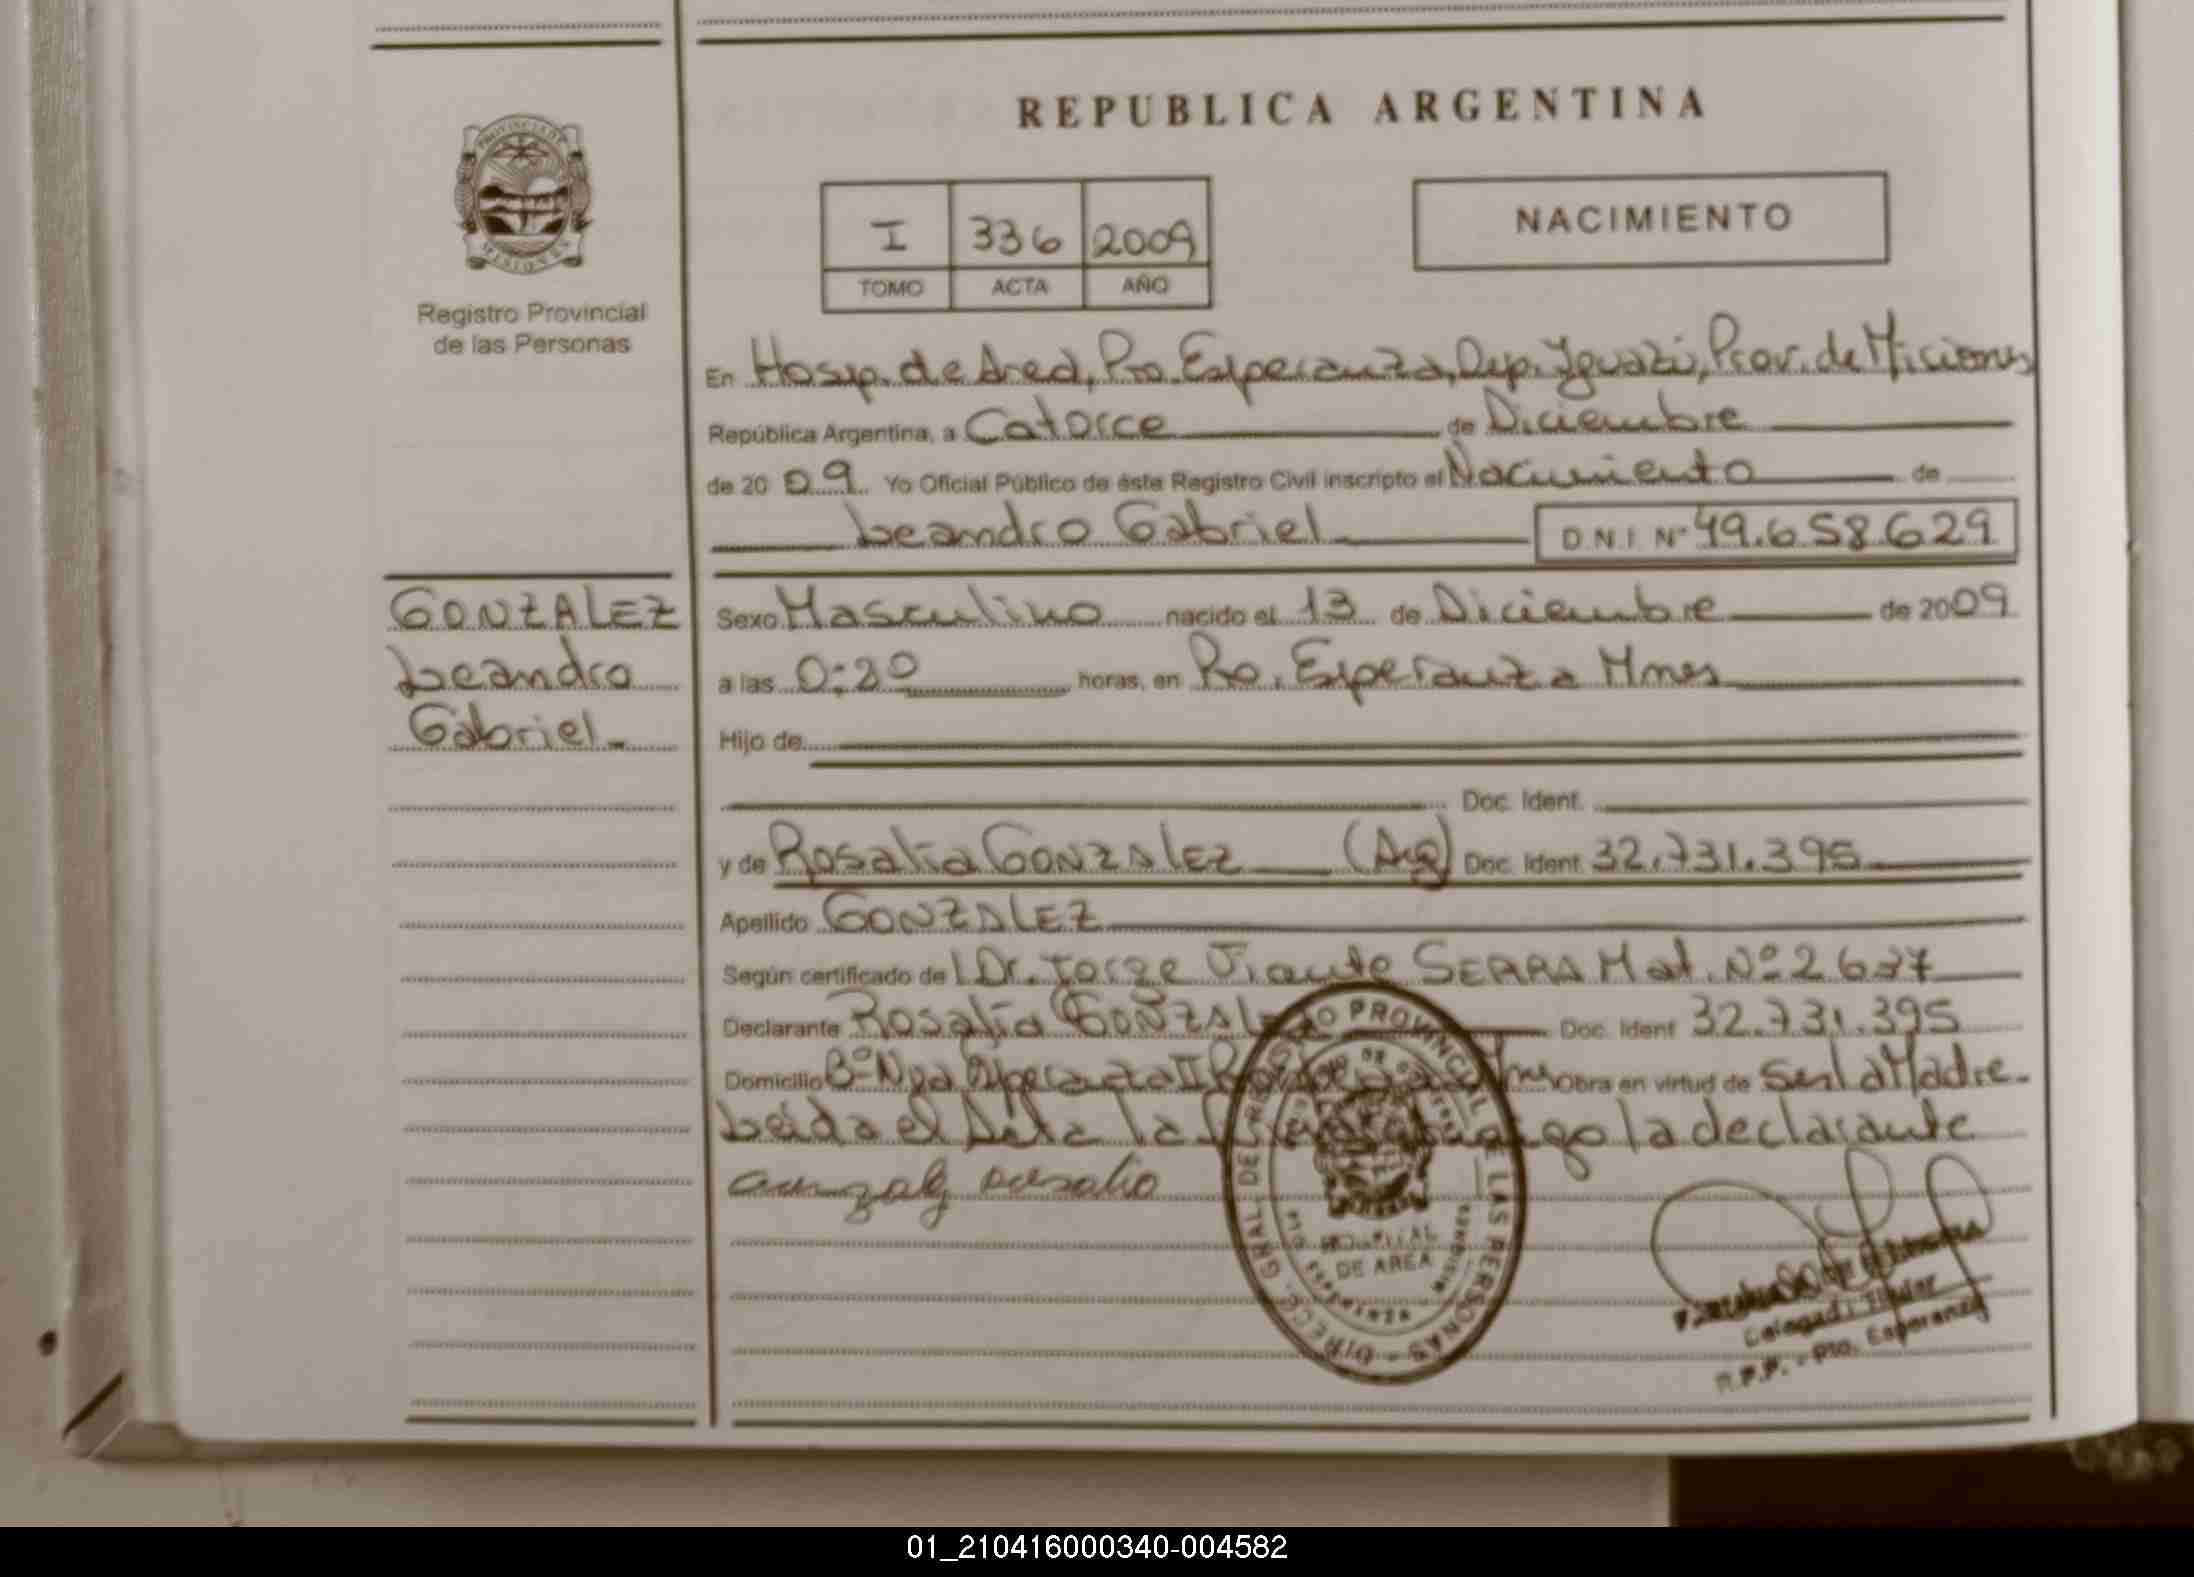 REPUBLICA ARGENTINA
PROVINCIA DE
MISIONES
Registro Provincial
de las Personas
I 336 2009
TOMO ACTA AÑO
NACIMIENTO
En Hosp. de Area, Pto. Esperanza, Dep. Iguazú, Prov. de Misiones
República Argentina, a Catorce de Diciembre
de 2009 Yo Oficial Público de éste Registro Civil inscripto el Nacimiento de
Leandro Gabriel D.N.I. Nº 49.658.629
GONZALEZ
Leandro
Gabriel
Sexo Masculino nacido el 13 de Diciembre de 2009
a las 0:20 horas, en Pto. Esperanza Mnes
Hijo de
Doc. Ident.
y de Rosalia GONZALEZ (Arg) Doc. Ident 32.731.395
Apellido GONZALEZ
Según certificado de l Dr. Jorge Vicente SERRA Mat. Nº 2637
Declarante Rosalía GONZALEZ Doc. Ident 32.731.395
Domicilio Bº Nva Esperanza II Obra en virtud de Ser la Madre.
Leída el Acta la conmigo la declarante
DIRECC. GRAL. DE REGISTRO PROVINCIAL DE LAS PERSONAS
HOSPITAL
DE AREA
Titular
R.P.P. - Pto. Esperanza
01_210416000340-004582